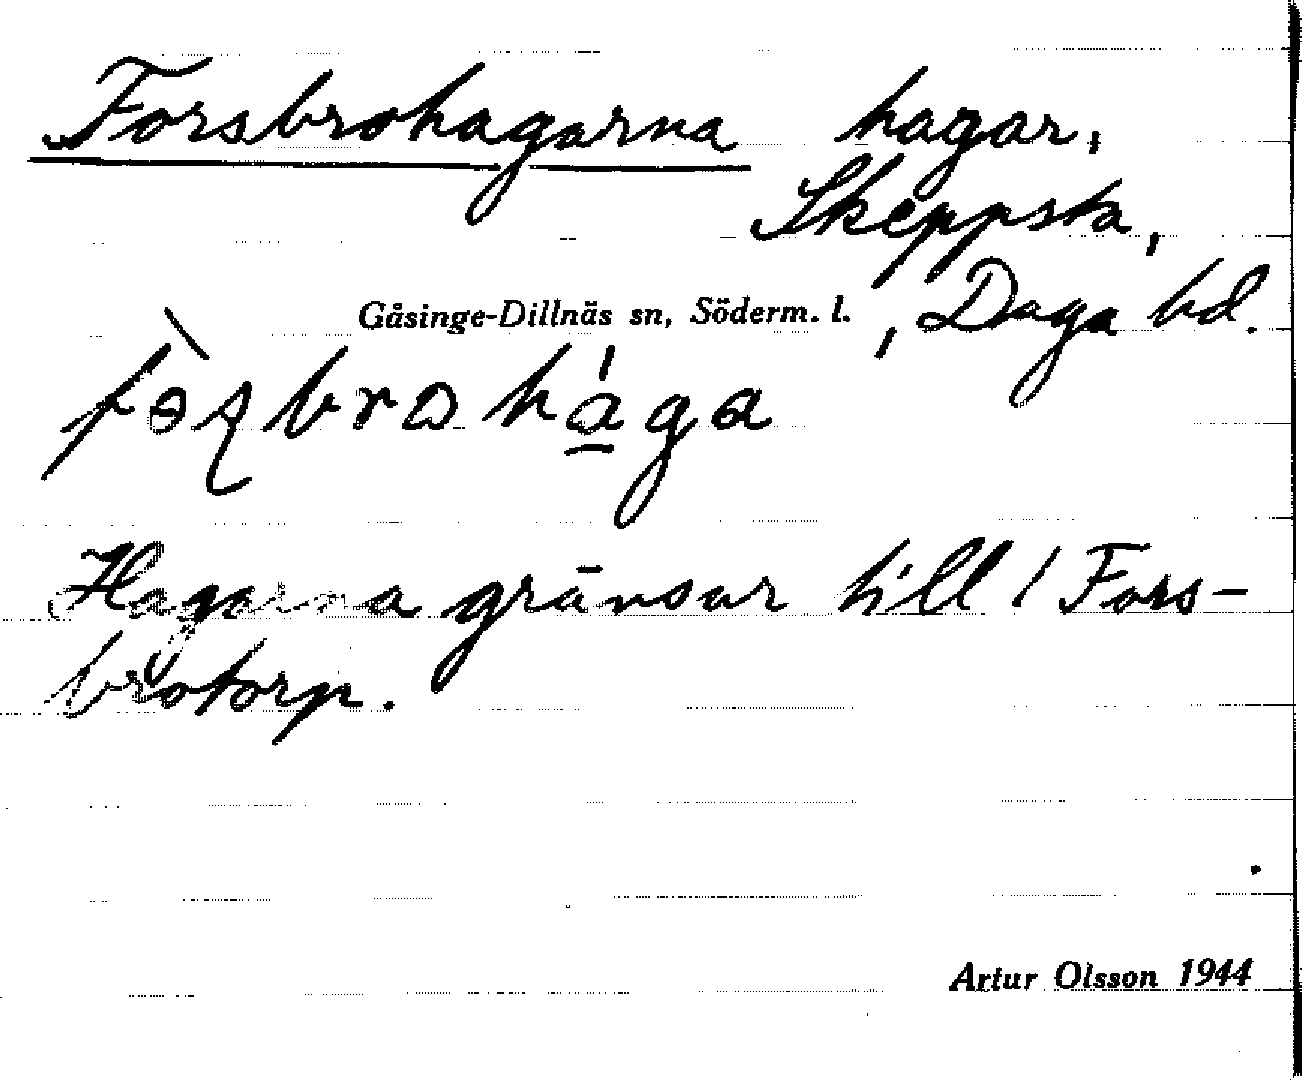 Forsbrohagarna hagar,
Skeppsta,
Gåsinge-Dillnäs sn, Söderm. l., Daga hd.
Hagarna gränsar till / Fors-
brotorp.
Artur Olsson 1944